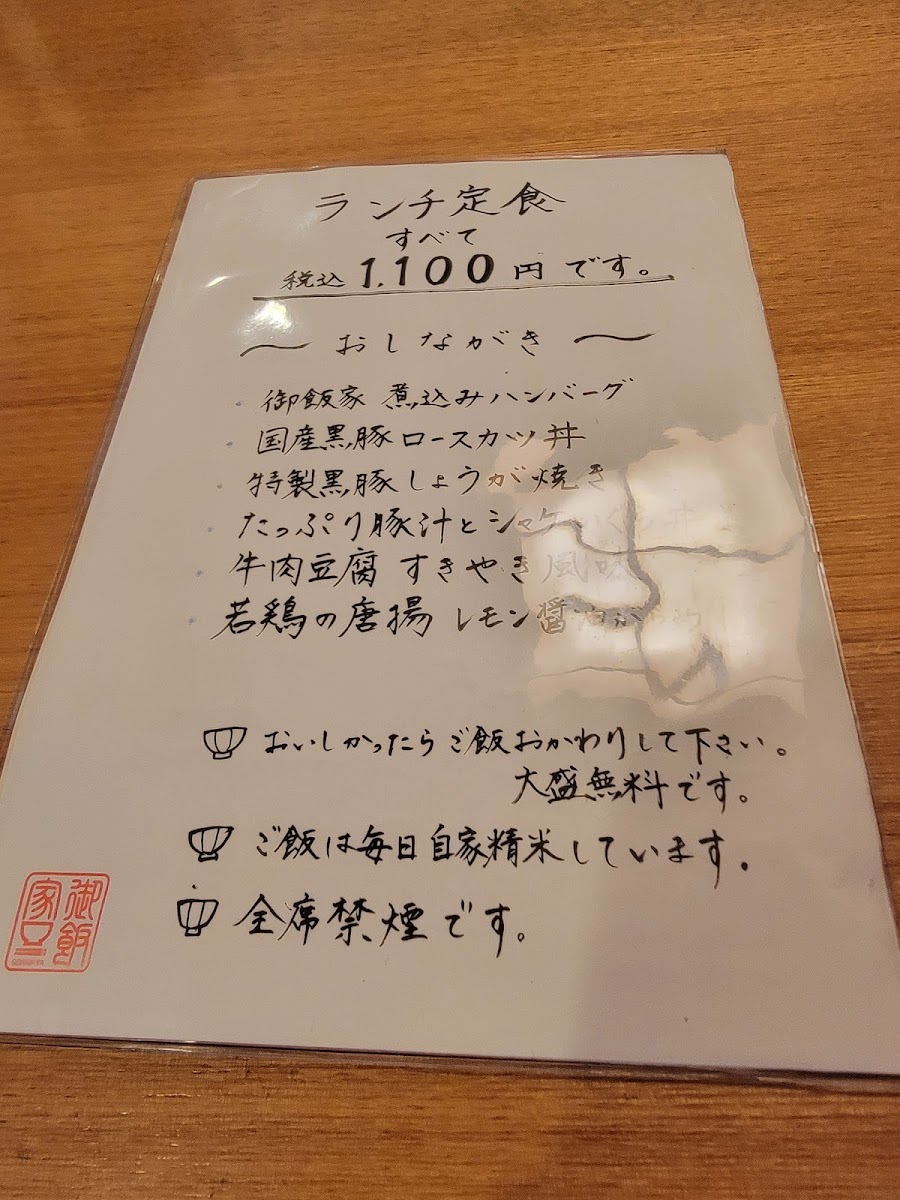 ランチ定食
すべて
税込 1.100円です。
〜 おしながき 〜
・御飯家 煮込みハンバーグ
・国産黒豚ロースカツ丼
・特製黒豚しょうが焼き
・たっぷり豚汁とシャケいくら丼
・牛肉豆腐 すきやき風味
・若鶏の唐揚 レモン醤油
おいしかったらご飯おかわりして下さい。
大盛無料です。
ご飯は毎日自家精米しています.
全席禁煙です。
御飯家